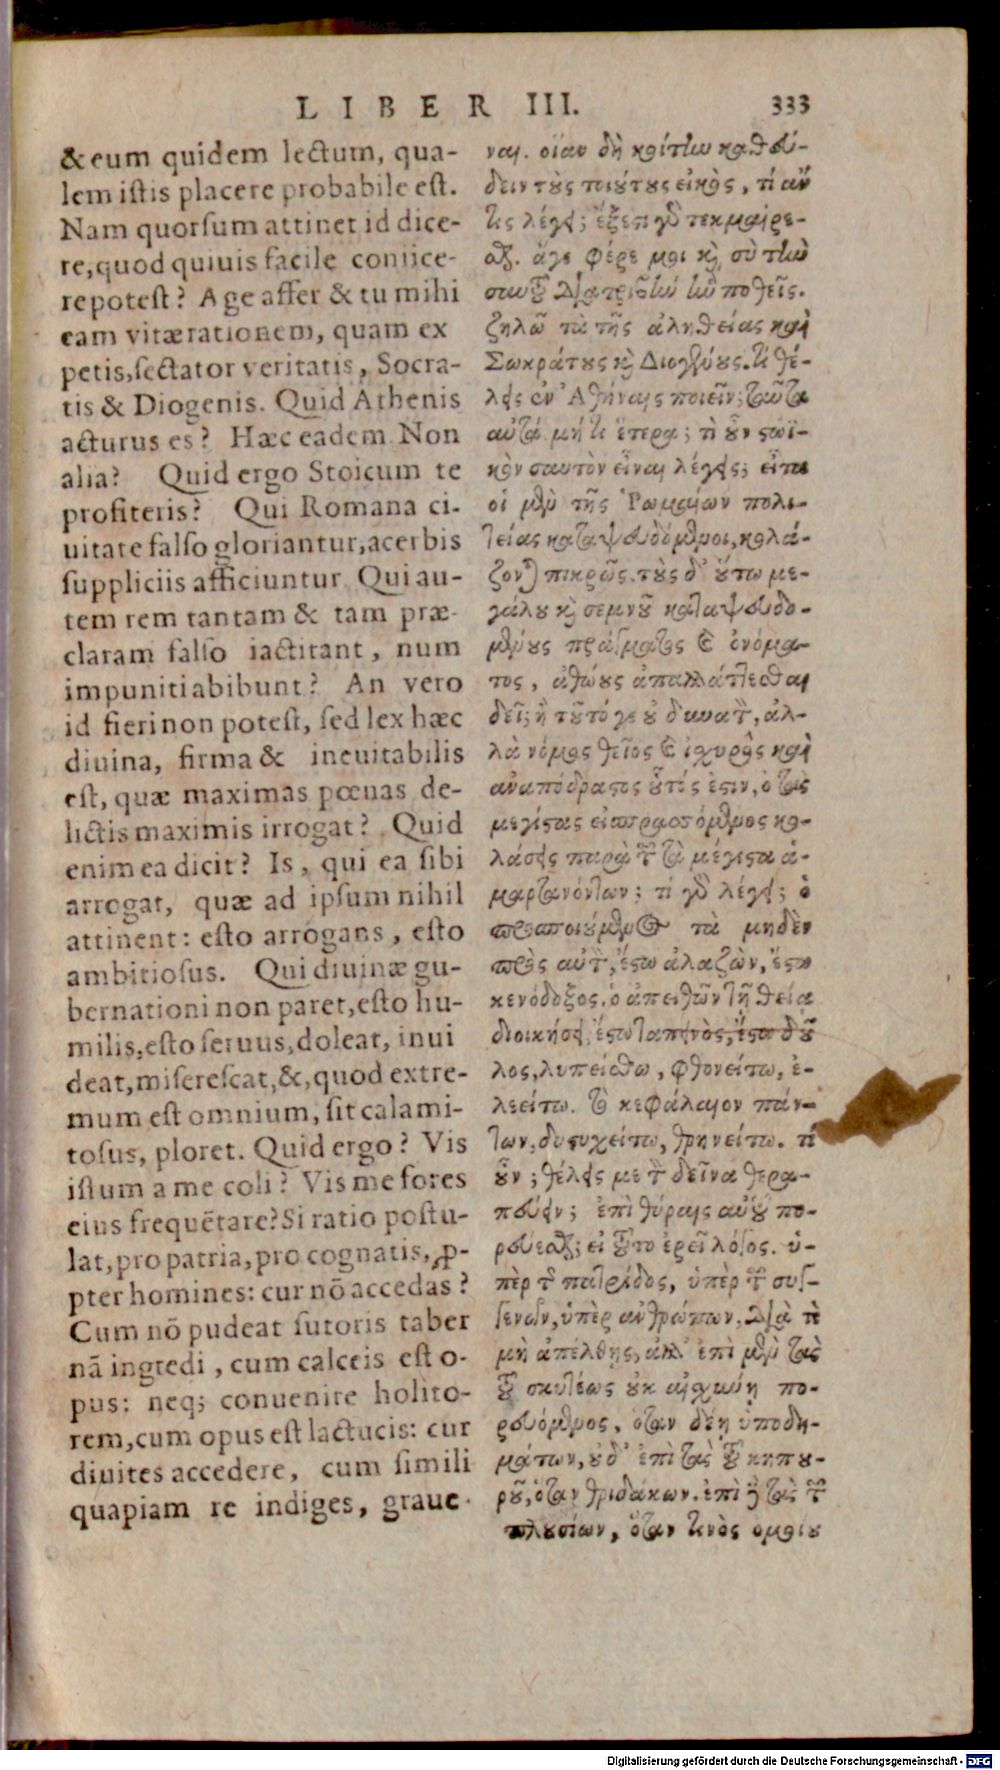 LIBER III. 333
& eum quidem lectum, qua-
lem istis placere probabile est.
Nam quorsum attinet id dice-
re, quod quiuis facile coniice-
re potest? Age affer & tu mihi
eam vitæ rationem, quam ex
petis, sectator veritatis, Socra-
tis & Diogenis. Quid Athenis
acturus es? Hæc eadem Non
alia? Quid ergo Stoicum te
profiteris? Qui Romana ci-
uitate falso gloriantur, acerbis
suppliciis afficiuntur. Qui au-
tem rem tantam & tam præ-
claram falso iactitant, num
impuniti abibunt? An vero
id fieri non potest, sed lex hæc
diuina, firma & ineuitabilis
est, quæ maximas pœnas de-
lictis maximis irrogat? Quid
enim ea dicit? Is, qui ea sibi
arrogat, quæ ad ipsum nihil
attinent: esto arrogans, esto
ambitiosus. Qui diuinæ gu-
bernationi non paret, esto hu-
milis, esto seruus, doleat, inui
deat, miserescat, &, quod extre-
mum est omnium, sit calami-
tosus, ploret. Quid ergo? Vis
istum a me coli? Vis me fores
eius frequẽtare? Si ratio postu-
lat, pro patria, pro cognatis, ꝓ-
pter homines: cur nõ accedas?
Cum nõ pudeat sutoris taber
nã ingredi, cum calceis est o-
pus: neq; conuenire holito-
rem, cum opus est lactucis: cur
diuites accedere, cum simili
quapiam re indiges, graue
ναι. οἵαν δὴ κοίτην καθεύ-
δειν τοὺς τοιούτους εἰκὸς, τί ἄν
τις λέγοι; ἔξεστι γὸ τεκμαίρε-
σθαι. ἄγε φέρε μοι καὶ σὺ τὴν
σαυτοῦ διατριβὴν ἣν ποθεῖς.
ζηλωτὰ τῆς ἀληθείας καὶ
Σωκράτους καὶ Διογένους. τί θέ-
λεις ἐν Ἀθήναις ποιεῖν; ταῦτα
αὐτά. μή τι ἕτερα; τί οὖν στωϊ-
κὸν σαυτὸν εἶναι λέγεις; εἶτα
οἱ μὲν τῆς Ῥωμαίων πολι-
τείας καταψευδόμενοι, κολά-
ζονται πικρῶς. τοὺς δ' οὕτω με-
γάλου καὶ σεμνοῦ καταψευδο-
μένους πράγματος καὶ ὀνόμα-
τος, ἀθώους ἀπαλλάττεσθαι
δεῖ; ἢ τοῦτό γε οὐ δυνατὸν, ἀλ-
λὰ νόμος θεῖος καὶ ἰσχυρὸς καὶ
ἀναπόδραστος οὗτός ἐστιν, ὁ τὰς
μεγίστας εἰσπρασσόμενος κο-
λάσεις παρὰ τῶν τὰ μέγιστα ἁ-
μαρτανόντων; τί γὸ λέγει; ὁ
προσποιούμενος τὰ μηδὲν
πρὸς αὐτὸν, ἔστω ἀλαζὼν, ἔστω
κενόδοξος. ὁ ἀπειθῶν τῇ θείᾳ
διοικήσει, ἔστω ταπεινὸς, ἔστω δοῦ
λος, λυπείσθω, φθονείτω, ἐ-
λεείτω. τὸ κεφάλαιον πάν-
των, δυστυχείτω, θρηνείτω. τί
οὖν; θέλεις με τὸν δεῖνα θερα-
πεύειν; ἐπὶ θύραις αὐτοῦ πο-
ρεύεσθαι; εἰ τοῦτο ἐρεῖ λόγος. ὑ-
πὲρ τῆς πατρίδος, ὑπὲρ τῶν συγ-
γενῶν, ὑπὲρ ἀνθρώπων, διὰ τί
μὴ ἀπέλθῃς, ἀλλ' ἐπὶ μὲν τὰς
τοῦ σκυτέως οὐκ αἰσχύνῃ πο-
ρευόμενος, ὅταν δέῃ ὑποδη-
μάτων, οὐδ' ἐπὶ τὰς τοῦ κηπου-
ροῦ, ὅταν θριδάκων. ἐπὶ δὲ τὰς τῶν
πλουσίων, ὅταν τινὸς ὁμοίου
Digitalisierung gefördert durch die Deutsche Forschungsgemeinschaft - DFG